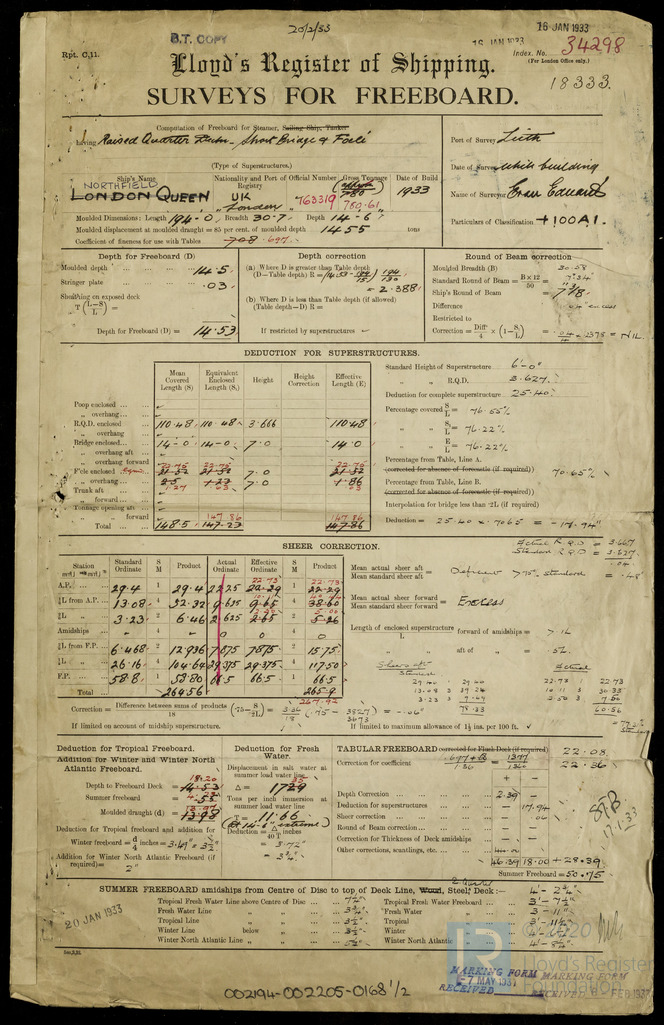 20/2/33
B.T. COPY
16 JAN 1933
16 JAN 1933
Rpt. C.11.
Index. No. 34298
(For London Office only.)
Lloyd's Register of Shipping.
18333.
SURVEYS FOR FREEBOARD.
Computation of Freeboard for Steamer, Sailing Ship, Tanker
having Raised Quarter Deck, Short Bridge & Foc'le
(Type of Superstructures.)
Port of Survey Leith
Date of Survey while building
Name of Surveyor
Particulars of Classification +100A1.
Ship's Name
Nationality and Port of Registry
Official Number
Gross Tonnage
Date of Build
NORTHFIELD
LONDON QUEEN
UK
London
163319
780
780.61
1933
Moulded Dimensions: Length 194-0 Breadth 30-7 Depth 14-6
Moulded displacement at moulded draught = 85 per cent. of moulded depth 1455 tons
Coefficient of fineness for use with Tables .708 .697
Depth for Freeboard (D)
Moulded depth 14.5
Stringer plate .03
Sheathing on exposed deck
T (L-S/L) =
Depth for Freeboard (D) = 14.53
Depth correction
(a) Where D is greater than Table depth
(D—Table depth) R =
= 2.388
(b) Where D is less than Table depth (if allowed)
(Table depth—D) R =
If restricted by superstructures
Round of Beam correction
Moulded Breadth (B) 30.58
Standard Round of Beam = B×12/50 = 7.34
Ship's Round of Beam = 7 3/8
Difference .04 excess
Restricted to
Correction = Diff/4 × (1-S/L) = .04/4 × .2378 = NIL.
DEDUCTION FOR SUPERSTRUCTURES.
Mean Covered Length (S)
Equivalent Enclosed Length (S₁)
Height
Height Correction
Effective Length (E)
Poop enclosed
" overhang
R.Q.D. enclosed 110.48 110.48 3.666 110.48
" overhang
Bridge enclosed 14-0 14-0 7.0 14.0
" overhang aft
" overhang forward
F'cle enclosed 22.75 22.75 22.75
21.52 21.52 7.0 21.52
" overhang 7.0 1.86
1.27 .63 .63
Trunk aft
" forward
Tonnage opening aft
" forward 147.86 147.86
Total 148.5 147.23 147.86
Standard Height of Superstructure 6'-0"
" " R.Q.D. 3.627
Deduction for complete superstructure 25.40
Percentage covered S/L = 76.55%
" " S₁/L = 76.22%
" " E/L = 76.22%
Percentage from Table, Line A.
(corrected for absence of forecastle (if required)) 70.65%
Percentage from Table, Line B.
(corrected for absence of forecastle (if required))
Interpolation for bridge less than .2L (if required)
Deduction = 25.40 × .7065 = -17.94"
SHEER CORRECTION.
Actual R.Q.D = 3.667
Standard R.Q.D = 3.627
.04
= .48"
Station
Standard Ordinate
S M
Product
Actual Ordinate
Effective Ordinate
S M
Product
22.73 22.73
A.P. 29.4 1 29.4 22.25 22.29 1 22.29
⅙L from A.P. 13.08 4 52.32 9.625 9.65 4 38.60
⅓L " 3.23 2 6.46 2.625 2.65 2 5.26
Amidships 0 4 0 0 0 4 0
⅓L from F.P. 6.468 2 12.936 7.875 7.875 2 15.75
⅙L " 26.16 4 104.64 29.375 29.375 4 117.50
F.P. 58.8 1 58.80 66.5 66.5 1 66.5
Total 264.56 265.9
267.92
Mean actual sheer aft / Mean standard sheer aft = Deficient > 75% standard
Mean actual sheer forward / Mean standard sheer forward = Excess
Length of enclosed superstructure / L forward of amidships = > .1L
" aft of " = .5L
Sheer aft
Standard Actual
29.40 1 29.40 22.73 1 22.73
13.08 3 39.24 10.11 3 30.33
3.23 3 9.69 2.50 3 7.50
78.33 60.56
Correction = Difference between sums of products / 18 (.75 - S/2L) = 3.36/18 (.75 - .3827) = -.06"
If limited on account of midship superstructure.
If limited to maximum allowance of 1½ ins. per 100 ft.
Deduction for Tropical Freeboard.
Addition for Winter and Winter North Atlantic Freeboard.
Depth to Freeboard Deck = 14.53
Summer freeboard =
Moulded draught (d) =
Deduction for Tropical freeboard and addition for
Winter freeboard = d/4 inches = 3.49 = 3½"
Addition for Winter North Atlantic Freeboard (if required) = 2"
Deduction for Fresh Water.
Displacement in salt water at summer load water line
Δ = 1729
Tons per inch immersion at summer load water line
T = 11.66
Deduction = Δ/40T inches
= 3.72"
= 3¾"
TABULAR FREEBOARD corrected for Flush Deck (if required) 22.08
Correction for coefficients .697+.68/1.36 = 1.377/1.36 22.36
+ -
Depth Correction 2.39 -
Deduction for superstructures - 17.94
Sheer correction - .06
Round of Beam correction - -
Correction for Thickness of Deck amidships - -
Other corrections, scantlings, etc.
46.39 18.00 +28.39
Summer Freeboard = 50.75
17.1.33
SUMMER FREEBOARD amidships from Centre of Disc to top of Deck Line, Wood, Steel, Deck:— 4'-2¾"
Tropical Fresh Water Line above Centre of Disc 7¼"
Fresh Water Line " " 3¾"
Tropical Line " " 3½"
Winter Line below " 3½"
Winter North Atlantic Line " " 5½"
Tropical Fresh Water Freeboard 3'-7½"
Fresh Water " 3'-11"
Tropical " 3'-11¼"
Winter " 4'-6¼"
Winter North Atlantic " 4'-8¼"
20 JAN 1933
© 2020
Lloyd's Register
Foundation
MARKING FORM
RECEIVED
-7 MAY 1937
MARKING FORM
RECEIVED FEB 1937
002194-002205-0168 1/2